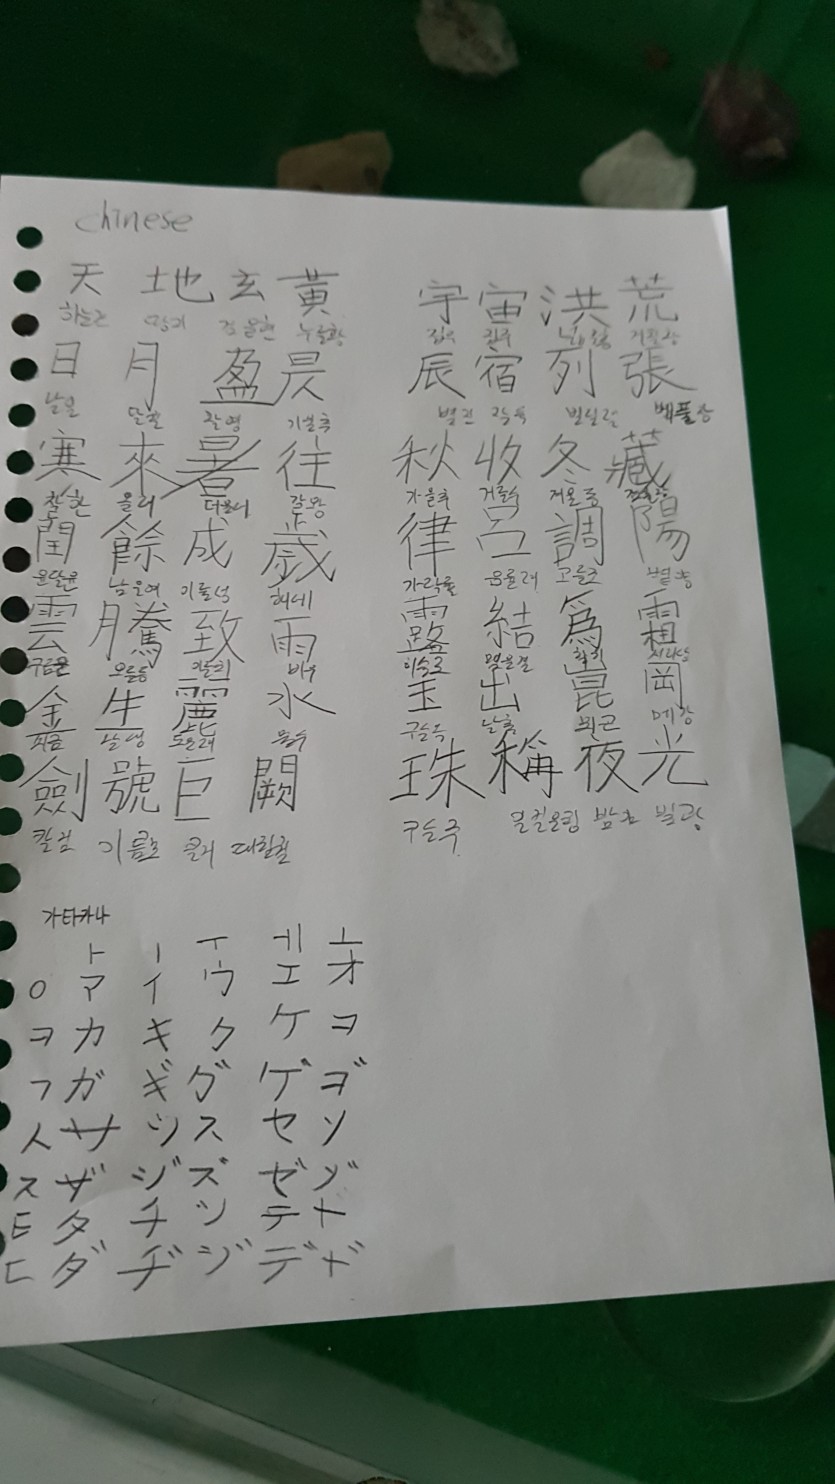 chinese
天 地 玄 黃 宇 宙 洪 荒
하늘천 땅지 검을현 누를황 집우 집주 넓을홍 거칠황
日 月 盈 昃 辰 宿 列 張
날일 달월 찰영 기울측 별진 잘숙 벌일렬 베풀장
寒 來 暑 往 秋 收 冬 藏
찰한 올래 더울서 갈왕 가을추 거둘수 겨울동
閏 餘 成 歲 律 呂 調 陽
윤달윤 남을여 이룰성 해세 가락률 음률려 고를조 볕양
雲 騰 致 雨 露 結 爲 霜
구름운 오를등 비우 이슬로 맺을결 서리상
金 生 麗 水 玉 出 崑 岡
쇠금 날생 물수 구슬옥 날출 뫼곤 메강
劍 號 巨 闕 珠 稱 夜 光
칼검 클거 대궐궐 구슬주 밤야 빛광
가타카나
ㅏ ㅣ ㅜ ㅔ ㅗ
ㅇ ア イ ウ エ オ
ㅋ カ キ ク ケ コ
ㄱ ガ ギ グ ゲ ゴ
ㅅ サ シ ス セ ソ
ㅈ ザ ジ ズ ゼ ゾ
ㅌ タ チ ツ テ ト
ㄷ ダ ヂ ヅ デ ド